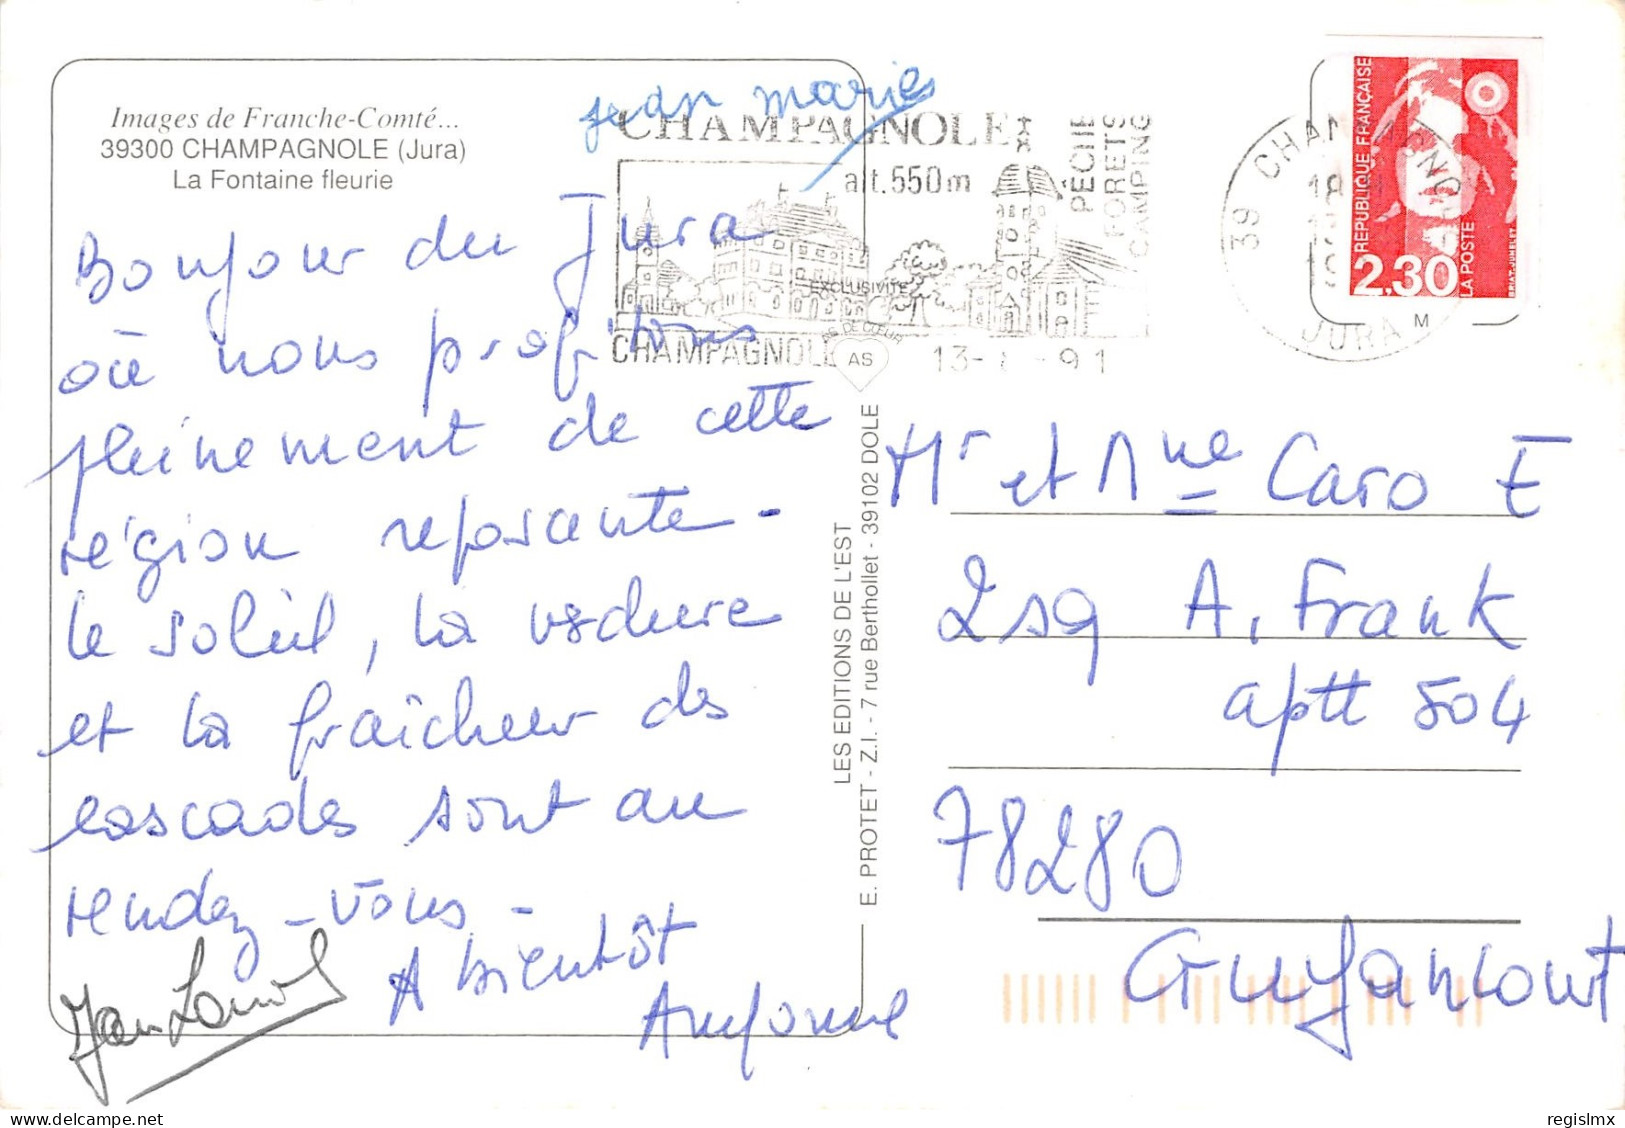 Images de Franche-Comté...
39300 CHAMPAGNOLE (Jura)
La Fontaine fleurie
jean marie
CHAMPAGNOLE
alt. 550m
PÊCHE
FORETS
CAMPING
CHAMPAGNOLE
13- -91
39 CHAMPAGNOLE
JURA
REPUBLIQUE FRANÇAISE
2,30
LA POSTE
BRIAT-JUMELET
M
EXCLUSIVITÉ
AS DE CŒUR
AS
Bonjour du Jura
où nous profitons
pleinement de cette
région reposante -
le soleil, la verdure
et la fraîcheur des
cascades sont au
rendez-vous -
A bientôt
Jean Louis
LES EDITIONS DE L'EST
E. PROTET - Z.I. - 7 rue Berthollet - 39102 DOLE
Mr et Mme Caro E
2 sq A. Frank
aptt 504
78280
Guyancourt
delcampe.net
regislmx